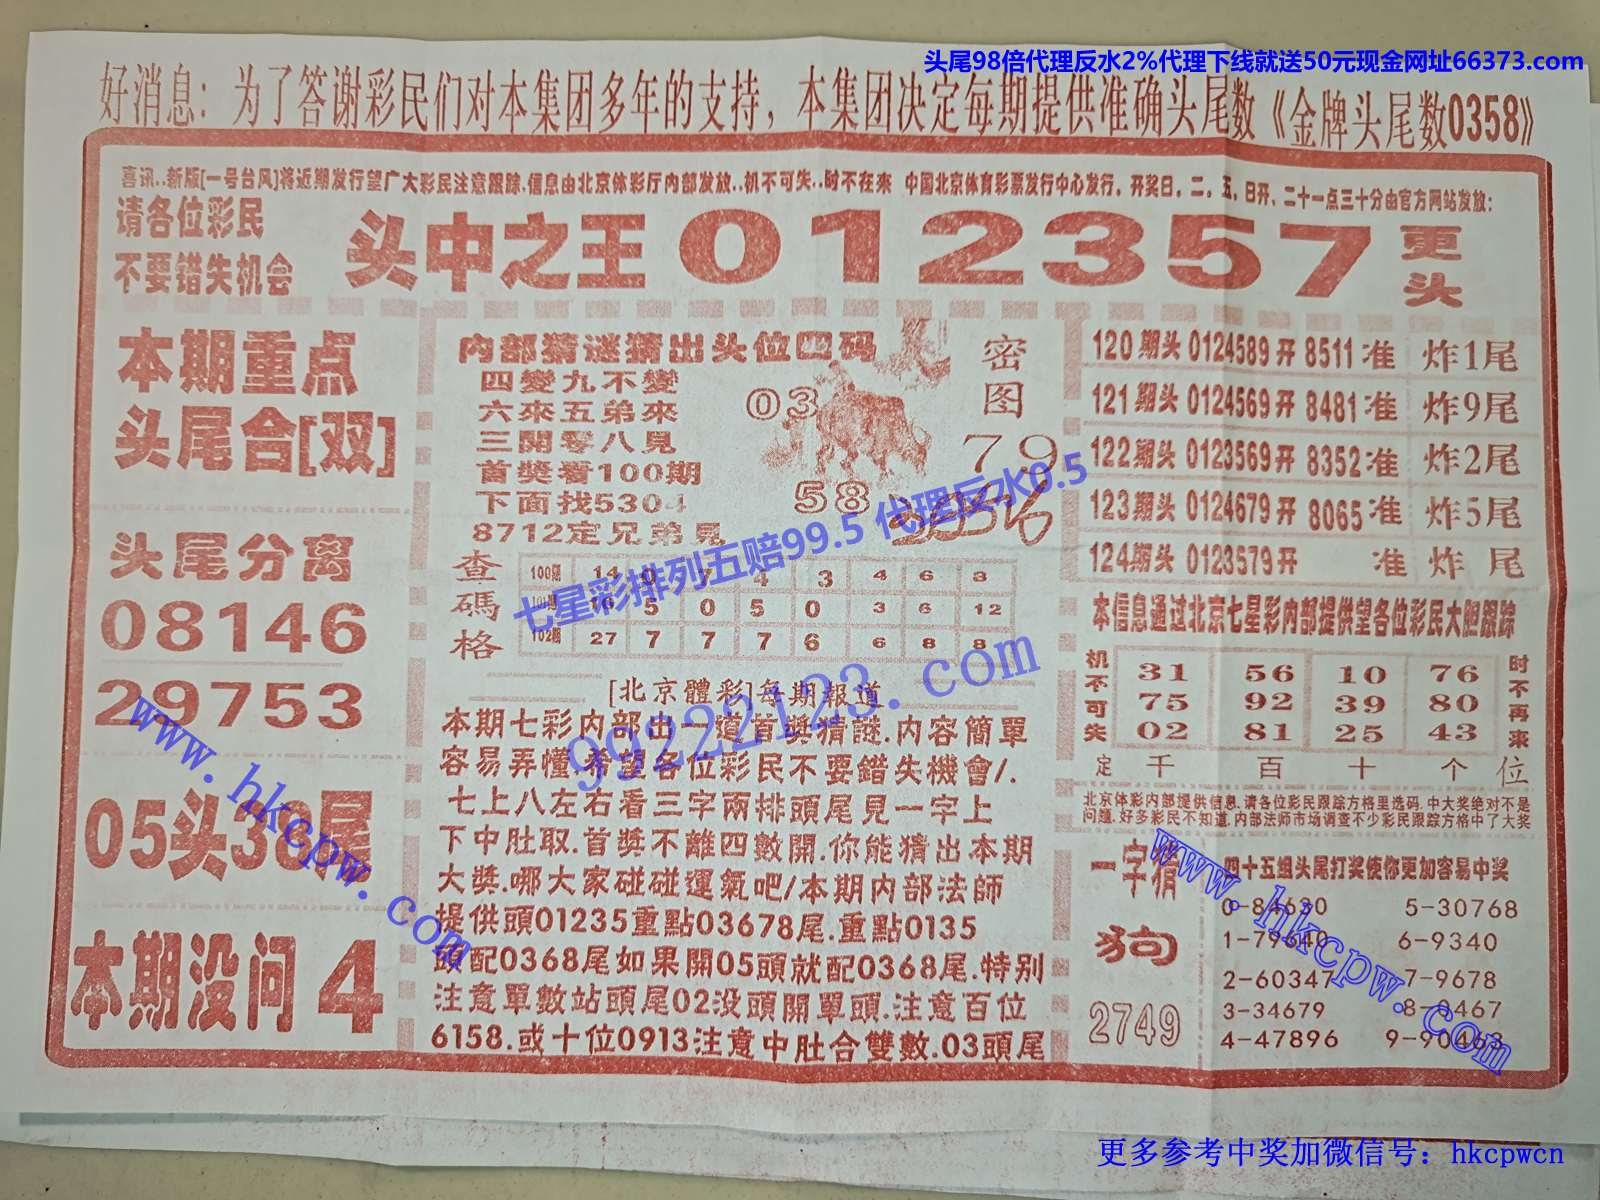 头尾98倍代理反水2%代理下线就送50元现金网址66373.com
好消息：为了答谢彩民们对本集团多年的支持，本集团决定每期提供准确头尾数《金牌头尾数0358》
喜讯..新版[一号台风]将近期发行望广大彩民注意跟踪.信息由北京体彩厅内部发放..机不可失..时不在来 中国北京体育彩票发行中心发行，开奖日，二，五，日开，二十一点三十分由官方网站发放：
请各位彩民
不要错失机会
头中之王012357更头
本期重点
头尾合[双]
头尾分离
08146
29753
05头36尾
本期没问4
内部猜谜猜出头位四码
四變九不變
六來五弟來
三開零八見
首獎看100期
下面找5304
8712定兄弟見
03
58
密图
79
查碼格
100期 14 0 7 4 3 4 6 3
101期 16 5 0 5 0 3 6 12
102期 27 7 7 7 6 6 8 8
[北京體彩]每期報道
本期七彩内部出一道首獎猜謎.内容簡單
容易弄懂.希望各位彩民不要錯失機會/.
七上八左右看三字兩排頭尾見一字上
下中肚取.首獎不離四數開.你能猜出本期
大獎.哪大家碰碰運氣吧/本期内部法師
提供頭01235重點03678尾.重點0135
頭配0368尾如果開05頭就配0368尾.特别
注意單數站頭尾02没頭開單頭.注意百位
6158.或十位0913注意中肚合雙數.03頭尾
120期头0124589开8511准 炸1尾
121期头0124569开8481准 炸9尾
122期头0123569开8352准 炸2尾
123期头0124679开8065准 炸5尾
124期头0123579开 准 炸 尾
本信息通过北京七星彩内部提供望各位彩民大胆跟踪
机不可失
31 56 10 76
75 92 39 80
02 81 25 43
时不再来
定 千 百 十 个 位
北京体彩内部提供信息.请各位彩民跟踪方格里选码.中大奖绝对不是
问题.好多彩民不知道.内部法师市场调查不少彩民跟踪方格中了大奖
一字猜
狗
2749
四十五组头尾打奖使你更加容易中奖
0-84620 5-30768
1-79640 6-9340
2-60347 7-9678
3-34679 8-0467
4-47896 9-90463
七星彩排列五赔99.5 代理反水0.5
99222123.com
www.hkcpw.com
www.hkcpw.com
更多参考中奖加微信号：hkcpwcn